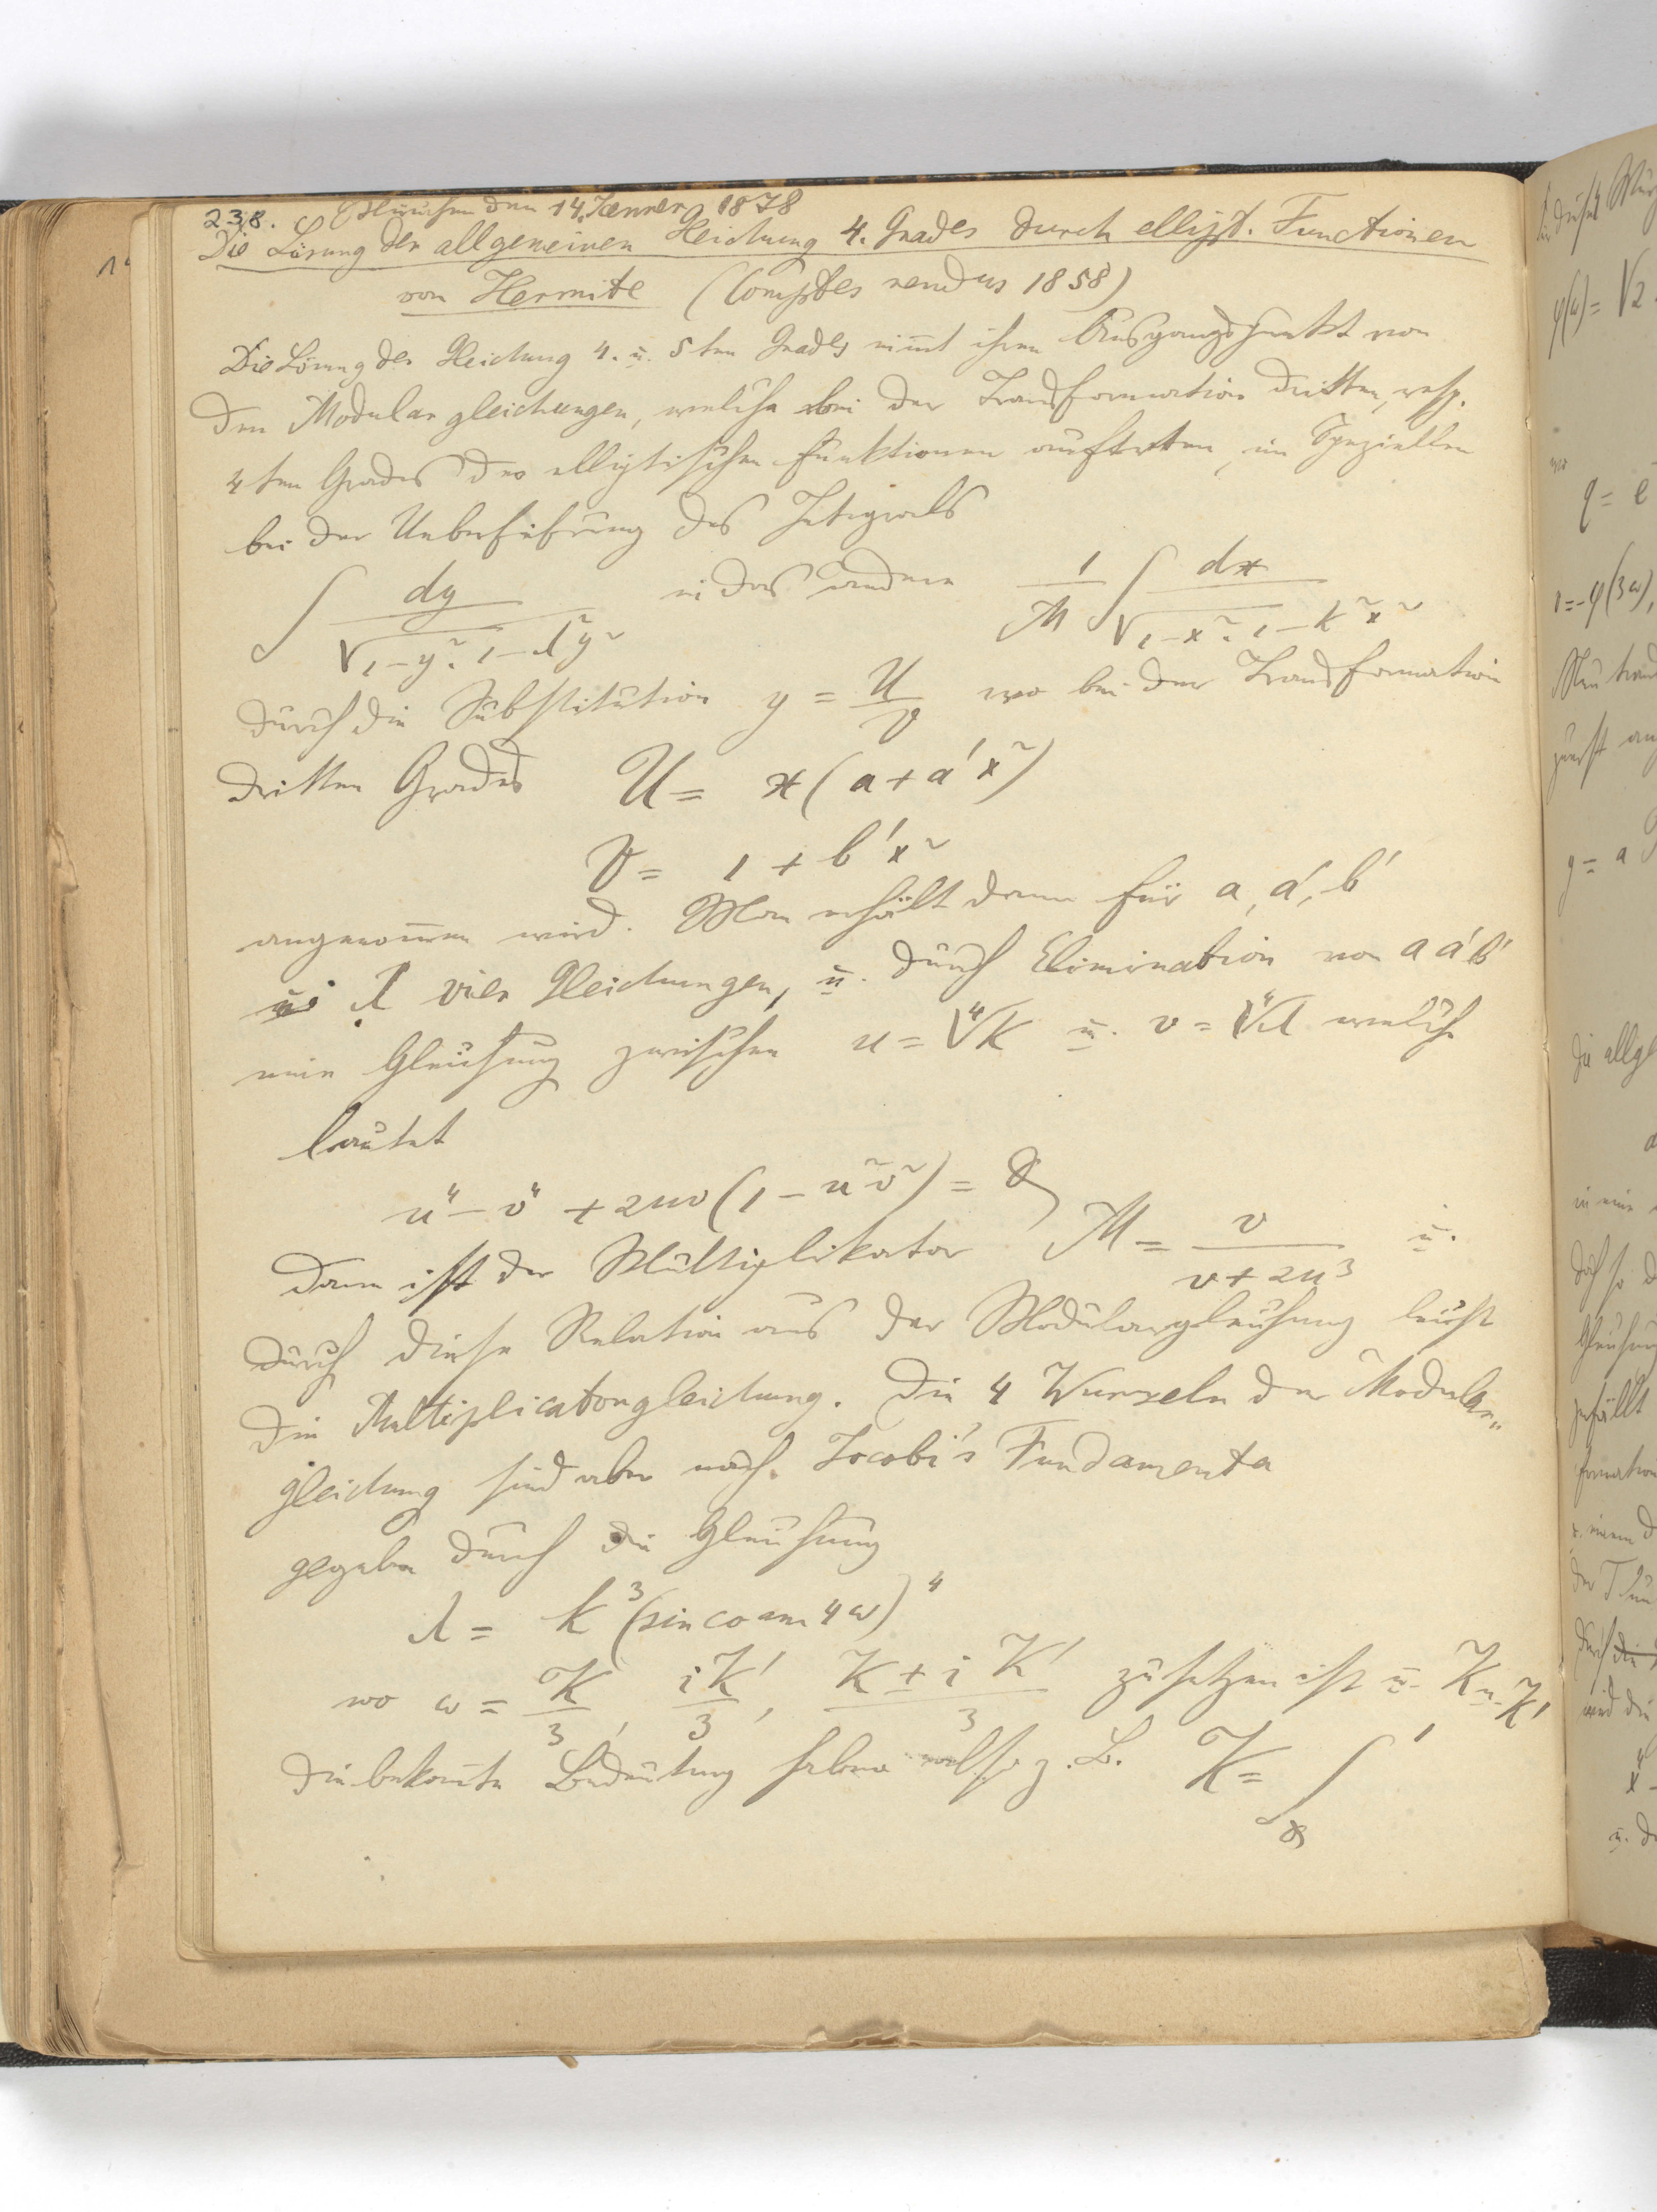 238. München den 14. Jenner 1878
Die Lösung der allgemeinen Gleichung 4. Grades durch ellipt. Functionen
von Hermite (Comptes rendus 1858)
Die Lösung der Gleichung 4. u. 5ten Grades nimmt ihren Ausgangspunkt von
den Modulargleichungen, welche bei der Transformation dritten, resp.
4ten Grades der elliptischen Funktionen auftreten, im Speziellen
bei der Ueberführung des Integrals
∫ dy / √1-y². 1-λ²y² in das andere 1/M ∫ dx / √1-x². 1-k²x²
durch die Substitution y = U/V wo bei der Transformation
dritten Grades U = x(a+a'x²)
V = 1 + b'x²
angenommen wird. Man erhält dann für a, a', b'
u. λ vier Gleichungen, u. durch Elimination von a a' b'
eine Gleichung zwischen u = ∜k u. v = ∜λ welche
lautet
u⁴ - v⁴ + 2uv(1 - u²v²) = 0
Dann ist der Multiplikator M = v / v + 2u³ u.
durch diese Relation aus der Modulargleichung leicht
die Multiplicatorgleichung. Die 4 Wurzeln der Modular„
gleichung sind aber nach Jacobi's Fundamenta
gegeben durch die Gleichung
λ = k³(sin co am 4ω)⁴
wo ω = K/3, iK'/3, K ± iK'/3 zu setzen ist u. K u. K'
die bekannte Bedeutung haben also z. B. K = ∫₀¹